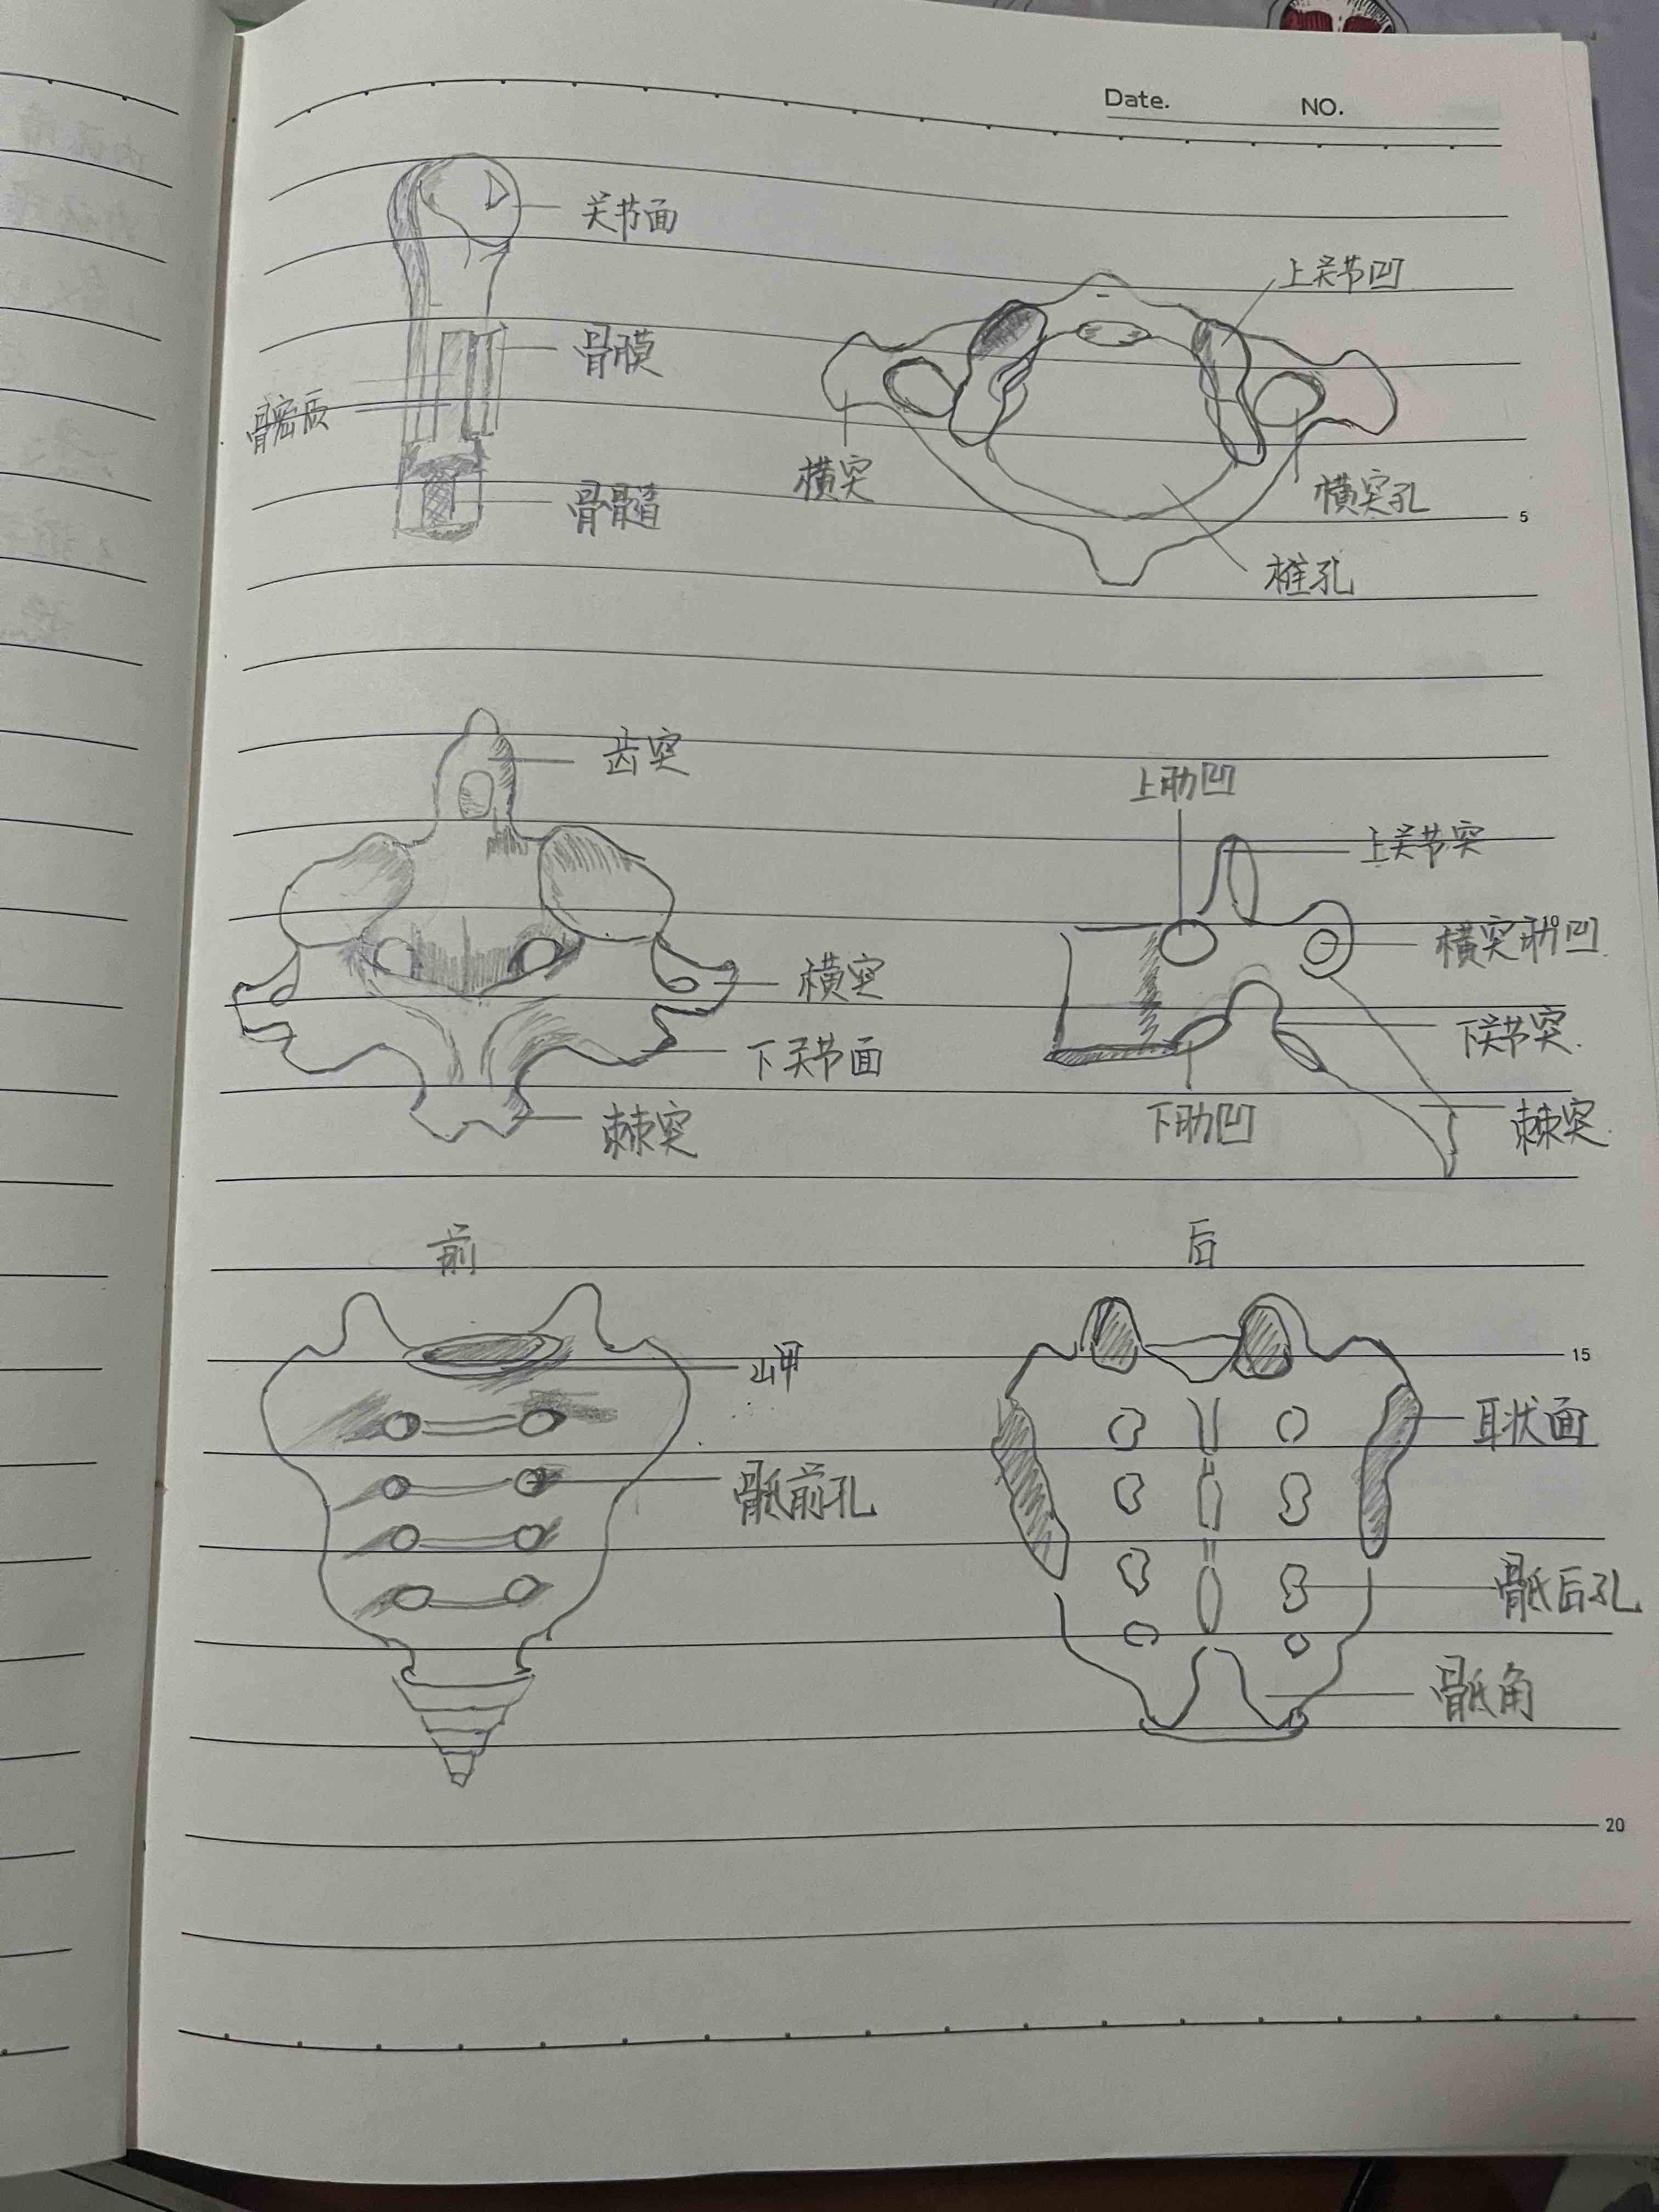 Date. NO.
关节面
骨膜
骨密质
骨髓
上关节凹
横突
横突孔
椎孔
5
齿突
横突
下关节面
棘突
上肋凹
上关节突
10
横突肋凹
下关节突
下肋凹
棘突
前
后
岬
15
骶前孔
耳状面
骶后孔
骶角
20